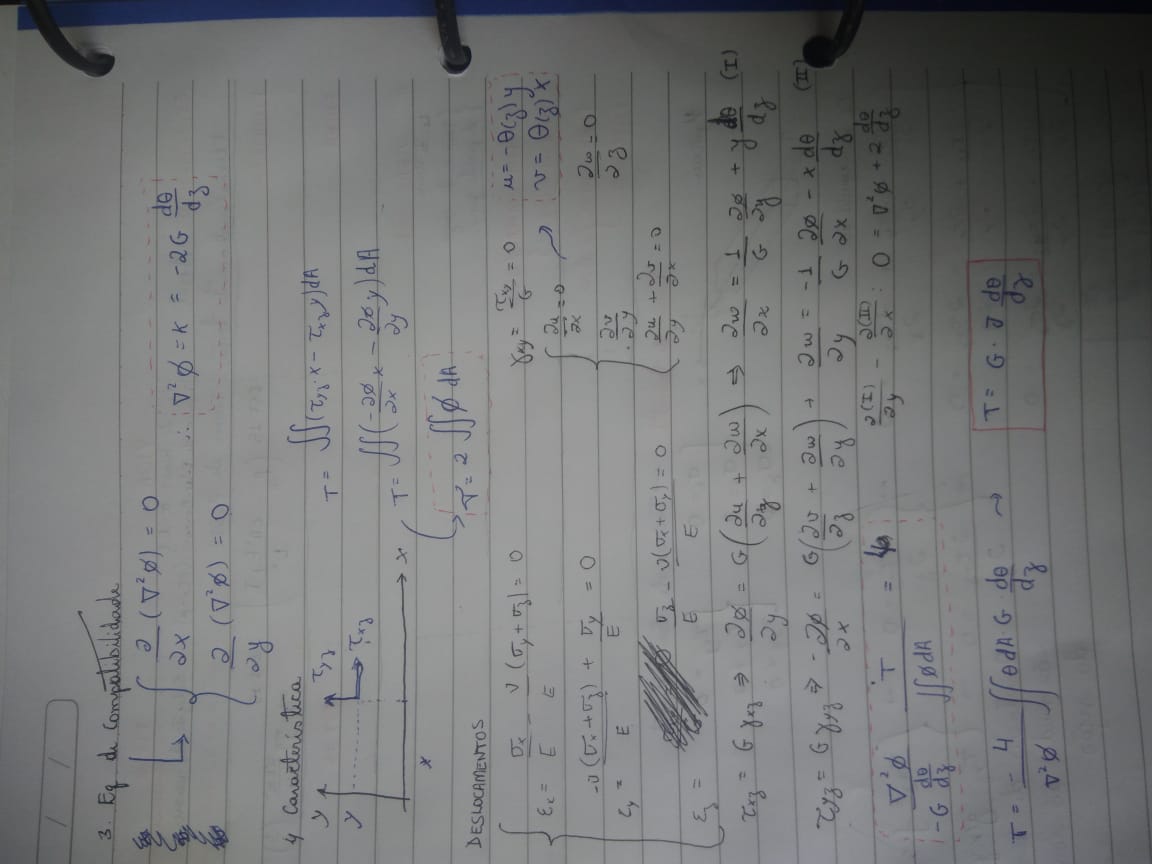 3. Eq de Compatibilidade
∂/∂x (∇²φ) = 0
∂/∂y (∇²φ) = 0
∴ ∇²φ = K = -2G dθ/dz
4 Característica
y
y
τyz
τxz
x
x
T = ∬(τyz·x - τxz y)dA
T = ∬(-∂φ/∂x x - ∂φ/∂y y)dA
T = 2∬φ dA
DESLOCAMENTOS
εx = σx/E - ν/E (σy+σz) = 0
εy = -ν(σx+σz)/E + σy/E = 0
εz = σz/E - ν(σx+σy)/E = 0
γxy = τxy/G = 0
∂u/∂x = 0
∂v/∂y
∂u/∂y + ∂v/∂x = 0
u = -θ(z)y
v = θ(z)x
∂w/∂z = 0
τxz = Gγxz ⇒ ∂φ/∂y = G(∂u/∂z + ∂w/∂x) ⇒ ∂w/∂x = 1/G ∂φ/∂y + y dθ/dz (I)
τyz = Gγyz ⇒ -∂φ/∂x = G(∂v/∂z + ∂w/∂y) → ∂w/∂y = -1/G ∂φ/∂x - x dθ/dz (II)
∂(I)/∂y - ∂(II)/∂x : 0 = ∇²φ + 2 dθ/dz
∇²φ / -G dθ/dz T / ∬φdA = 4
T = -4/∇²φ ∬θdA G · dθ/dz → T = G·J dθ/dz